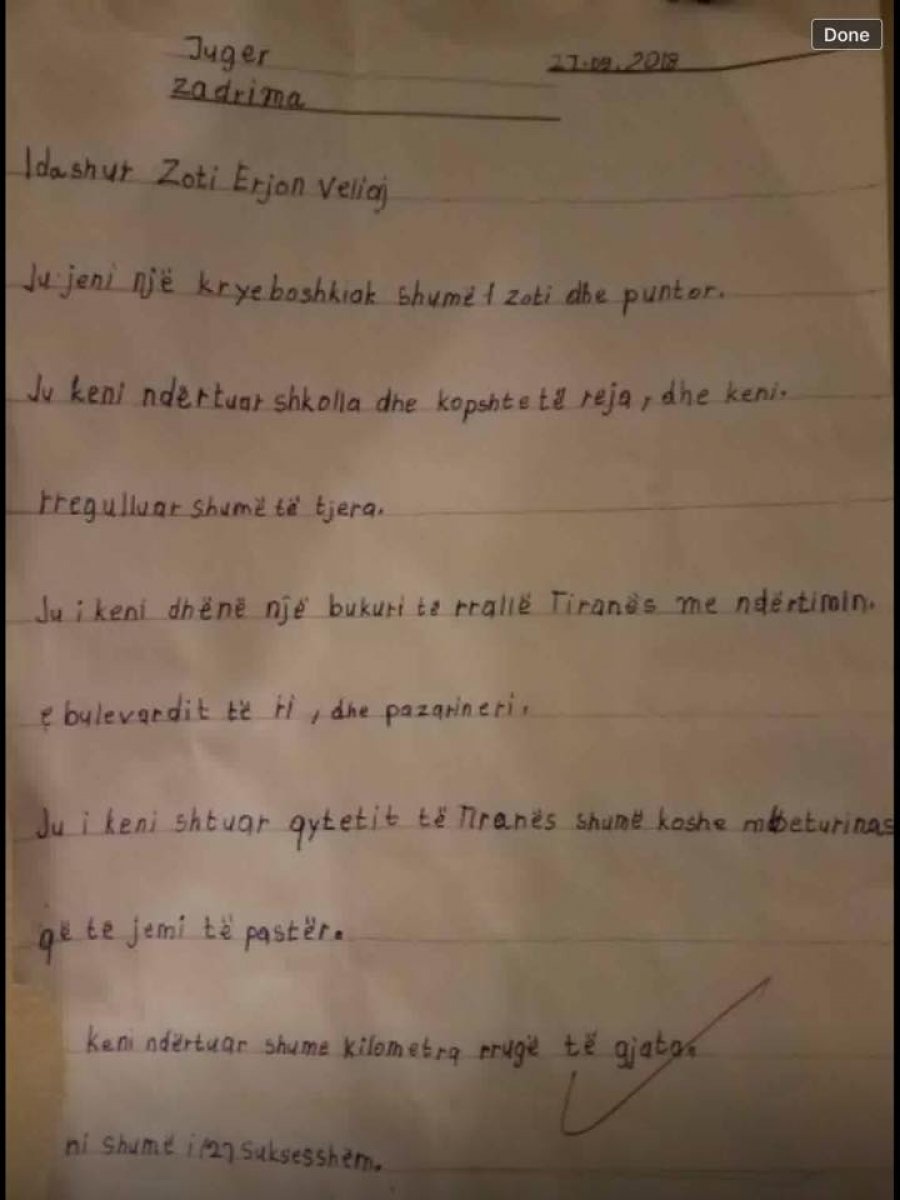 Done
Juger 27.09.2018
zadrima
I dashur Zoti Erjon Veliaj
Ju jeni një kryeboshkiak shumë I zoti dhe puntor.
Ju keni ndërtuar shkolla dhe kopshte të reja, dhe keni.
rregulluar shumë të tjera.
Ju i keni dhënë një bukuri te rrallë Tiranës me ndërtimin.
e bulevardit të ri, dhe pazarineri.
Ju i keni shtuar qytetit të Tiranës shumë koshe mbeturinas
që te jemi të pastër.
keni ndërtuar shume kilometra rrugë të gjata.
ni shumë i suksesshëm.